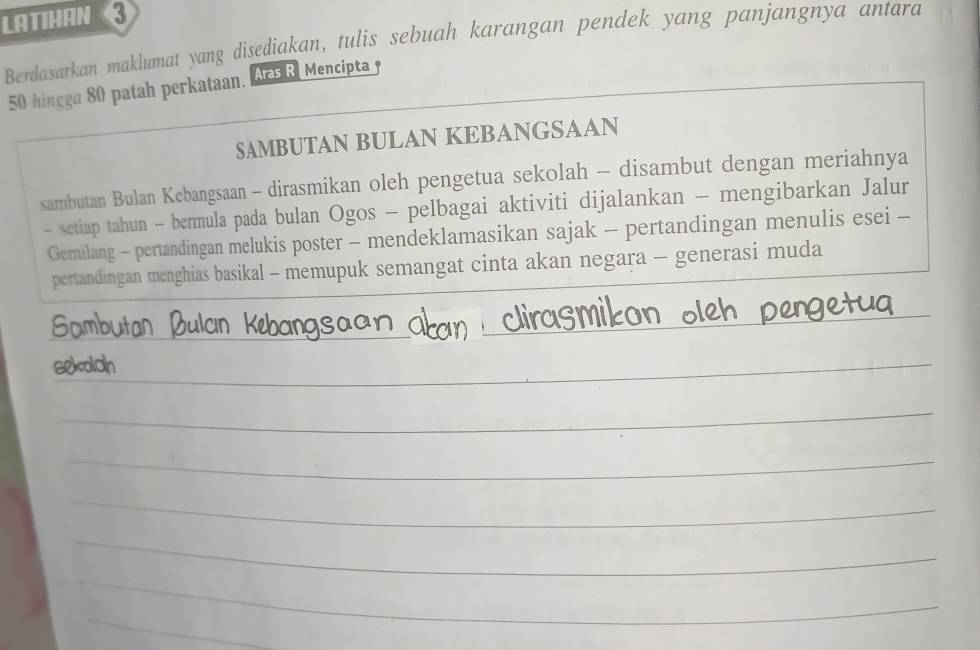 LATIHAN 3
Berdasarkan maklumat yang disediakan, tulis sebuah karangan pendek yang panjangnya antara
50 hingga 80 patah perkataan. Aras R Mencipta
SAMBUTAN BULAN KEBANGSAAN
sambutan Bulan Kebangsaan – dirasmikan oleh pengetua sekolah – disambut dengan meriahnya
– setiap tahun – bermula pada bulan Ogos – pelbagai aktiviti dijalankan – mengibarkan Jalur
Gemilang – pertandingan melukis poster – mendeklamasikan sajak – pertandingan menulis esei –
pertandingan menghias basikal – memupuk semangat cinta akan negara – generasi muda
Sambutan Bulan Kebangsaan akan dirasmikan oleh pengetua
sekolah